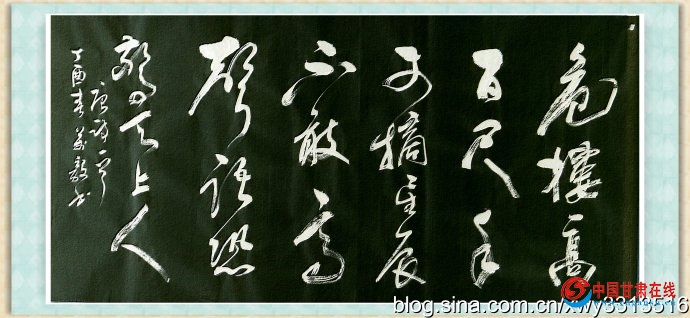 危樓高
百尺手
可摘星辰
不敢高
聲語恐
驚天上人
唐詩一首
丁酉春
毅书
中国甘肃在线
blog.sina.com.cn/xwy3319516